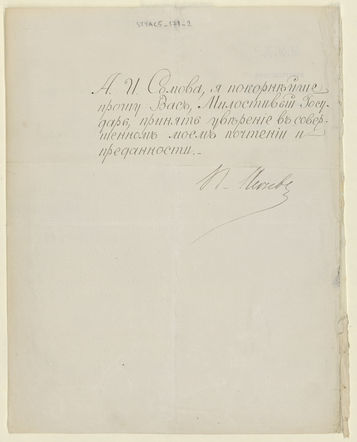 А. И. Сомова, я покорнѣйше
прошу Васъ, Милостивый Госу-
дарь, принять увѣреніе въ совер-
шенномъ моемъ почтеніи и
преданности._